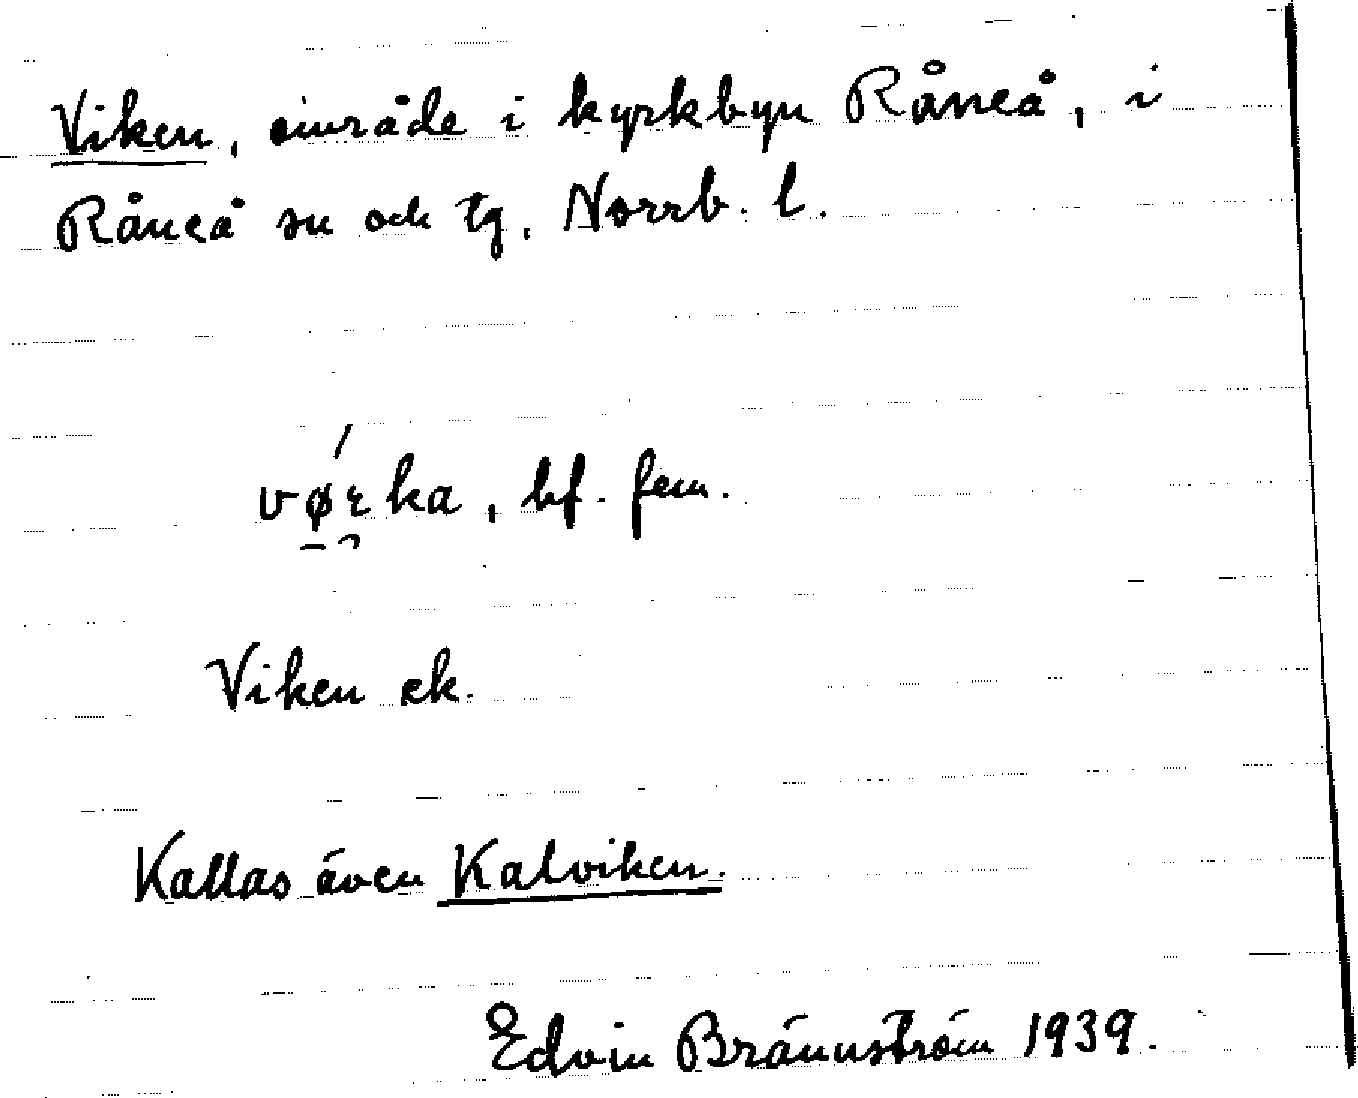 Viken, område i kyrkbyn Råneå, i
Råneå sn och tg, Norrb. l.
vǿ̱ɛ̯ka, bf. fem.
Viken ek.
Kallas även Kalviken.
Edvin Brännström 1939.